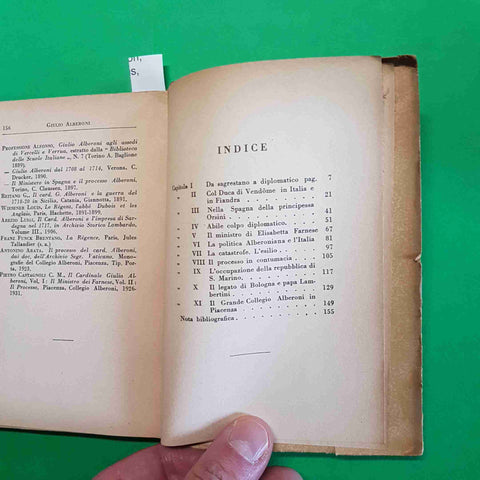 156 GIULIO ALBERONI
PROFESSIONE ALFONSO, Giulio Alberoni agli assedi
di Vercelli e Verrua, estratto dalla « Biblioteca
delle Scuole Italiane », N. 7 (Torino A. Baglione
1889).
— Giulio Alberoni dal 1708 al 1714, Verona, C.
Drucker, 1890.
— Il Ministero in Spagna e il processo Alberoni,
Torino, C. Clausen, 1897.
G., Il card. G. Alberoni e la guerra del
1718-20 in Sicilia, Catania, Giannotta, 1897.
WIESENER LOUIS, Le Régent, l'abbé Dubois et les
Anglais, Paris, Hachette, 1891-1899.
AREZIO LUIGI, Il Card. Alberoni e l'impresa di Sar-
degna nel 1717, in Archivio Storico Lombardo,
Volume III., 1906.
FRANZ FUNCK BRENTANO, La Régence, Paris, Jules
Tallandier (s. a.)
ANTONIO ARATA, Il processo del card. Alberoni,
dai doc. dell'Arch. Segr. Vaticano. Monografie
del Collegio Alberoni, Piacenza, Tip. Por-
ta, 1923.
PIETRO CASTAGNOLI C. M., Il Cardinale Giulio Al-
beroni, Vol. I: Il Ministro dei Farnese, Vol. II:
Il Processo, Piacenza, Collegio Alberoni, 1929-
1931.
INDICE
Capitolo I Da sagrestano a diplomatico pag. 7
» II Col Duca di Vendôme in Italia e
in Fiandra 21
» III Nella Spagna della principessa
Orsini 41
» IV Abile colpo diplomatico. 51
» V Il ministro di Elisabetta Farnese 63
» VI La politica Alberoniana e l'Italia 81
» VII La catastrofe. L'esilio 97
» VIII Il processo in contumacia 105
» IX L'occupazione della repubblica di
S. Marino. 117
» X Il legato di Bologna e papa Lam-
bertini 129
» XI Il Grande Collegio Alberoni in
Piacenza 149
Nota bibliografica 155